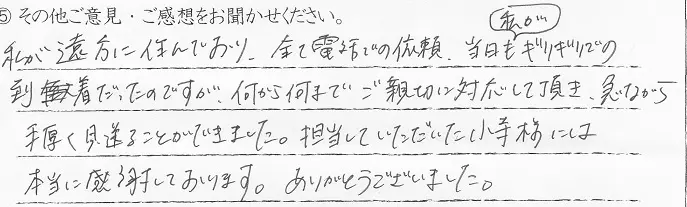 ⑤ その他ご意見・ご感想をお聞かせください。
私が遠方に住んでおり、全て電話での依頼、当日も私がギリギリでの
到着だったのですが、何から何までご親切に対応して頂き、急ながら
手厚く見送ることができました。担当していただいた小寺様には
本当に感謝しております。ありがとうございました。